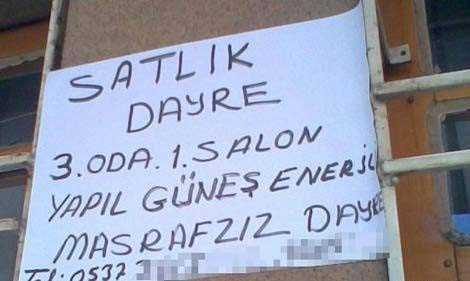 SATLIK
DAYRE
3.ODA.1.SALON
YAPIL GÜNEŞ ENERJİL
MASRAFZIZ DAYRE
Tel: 0532